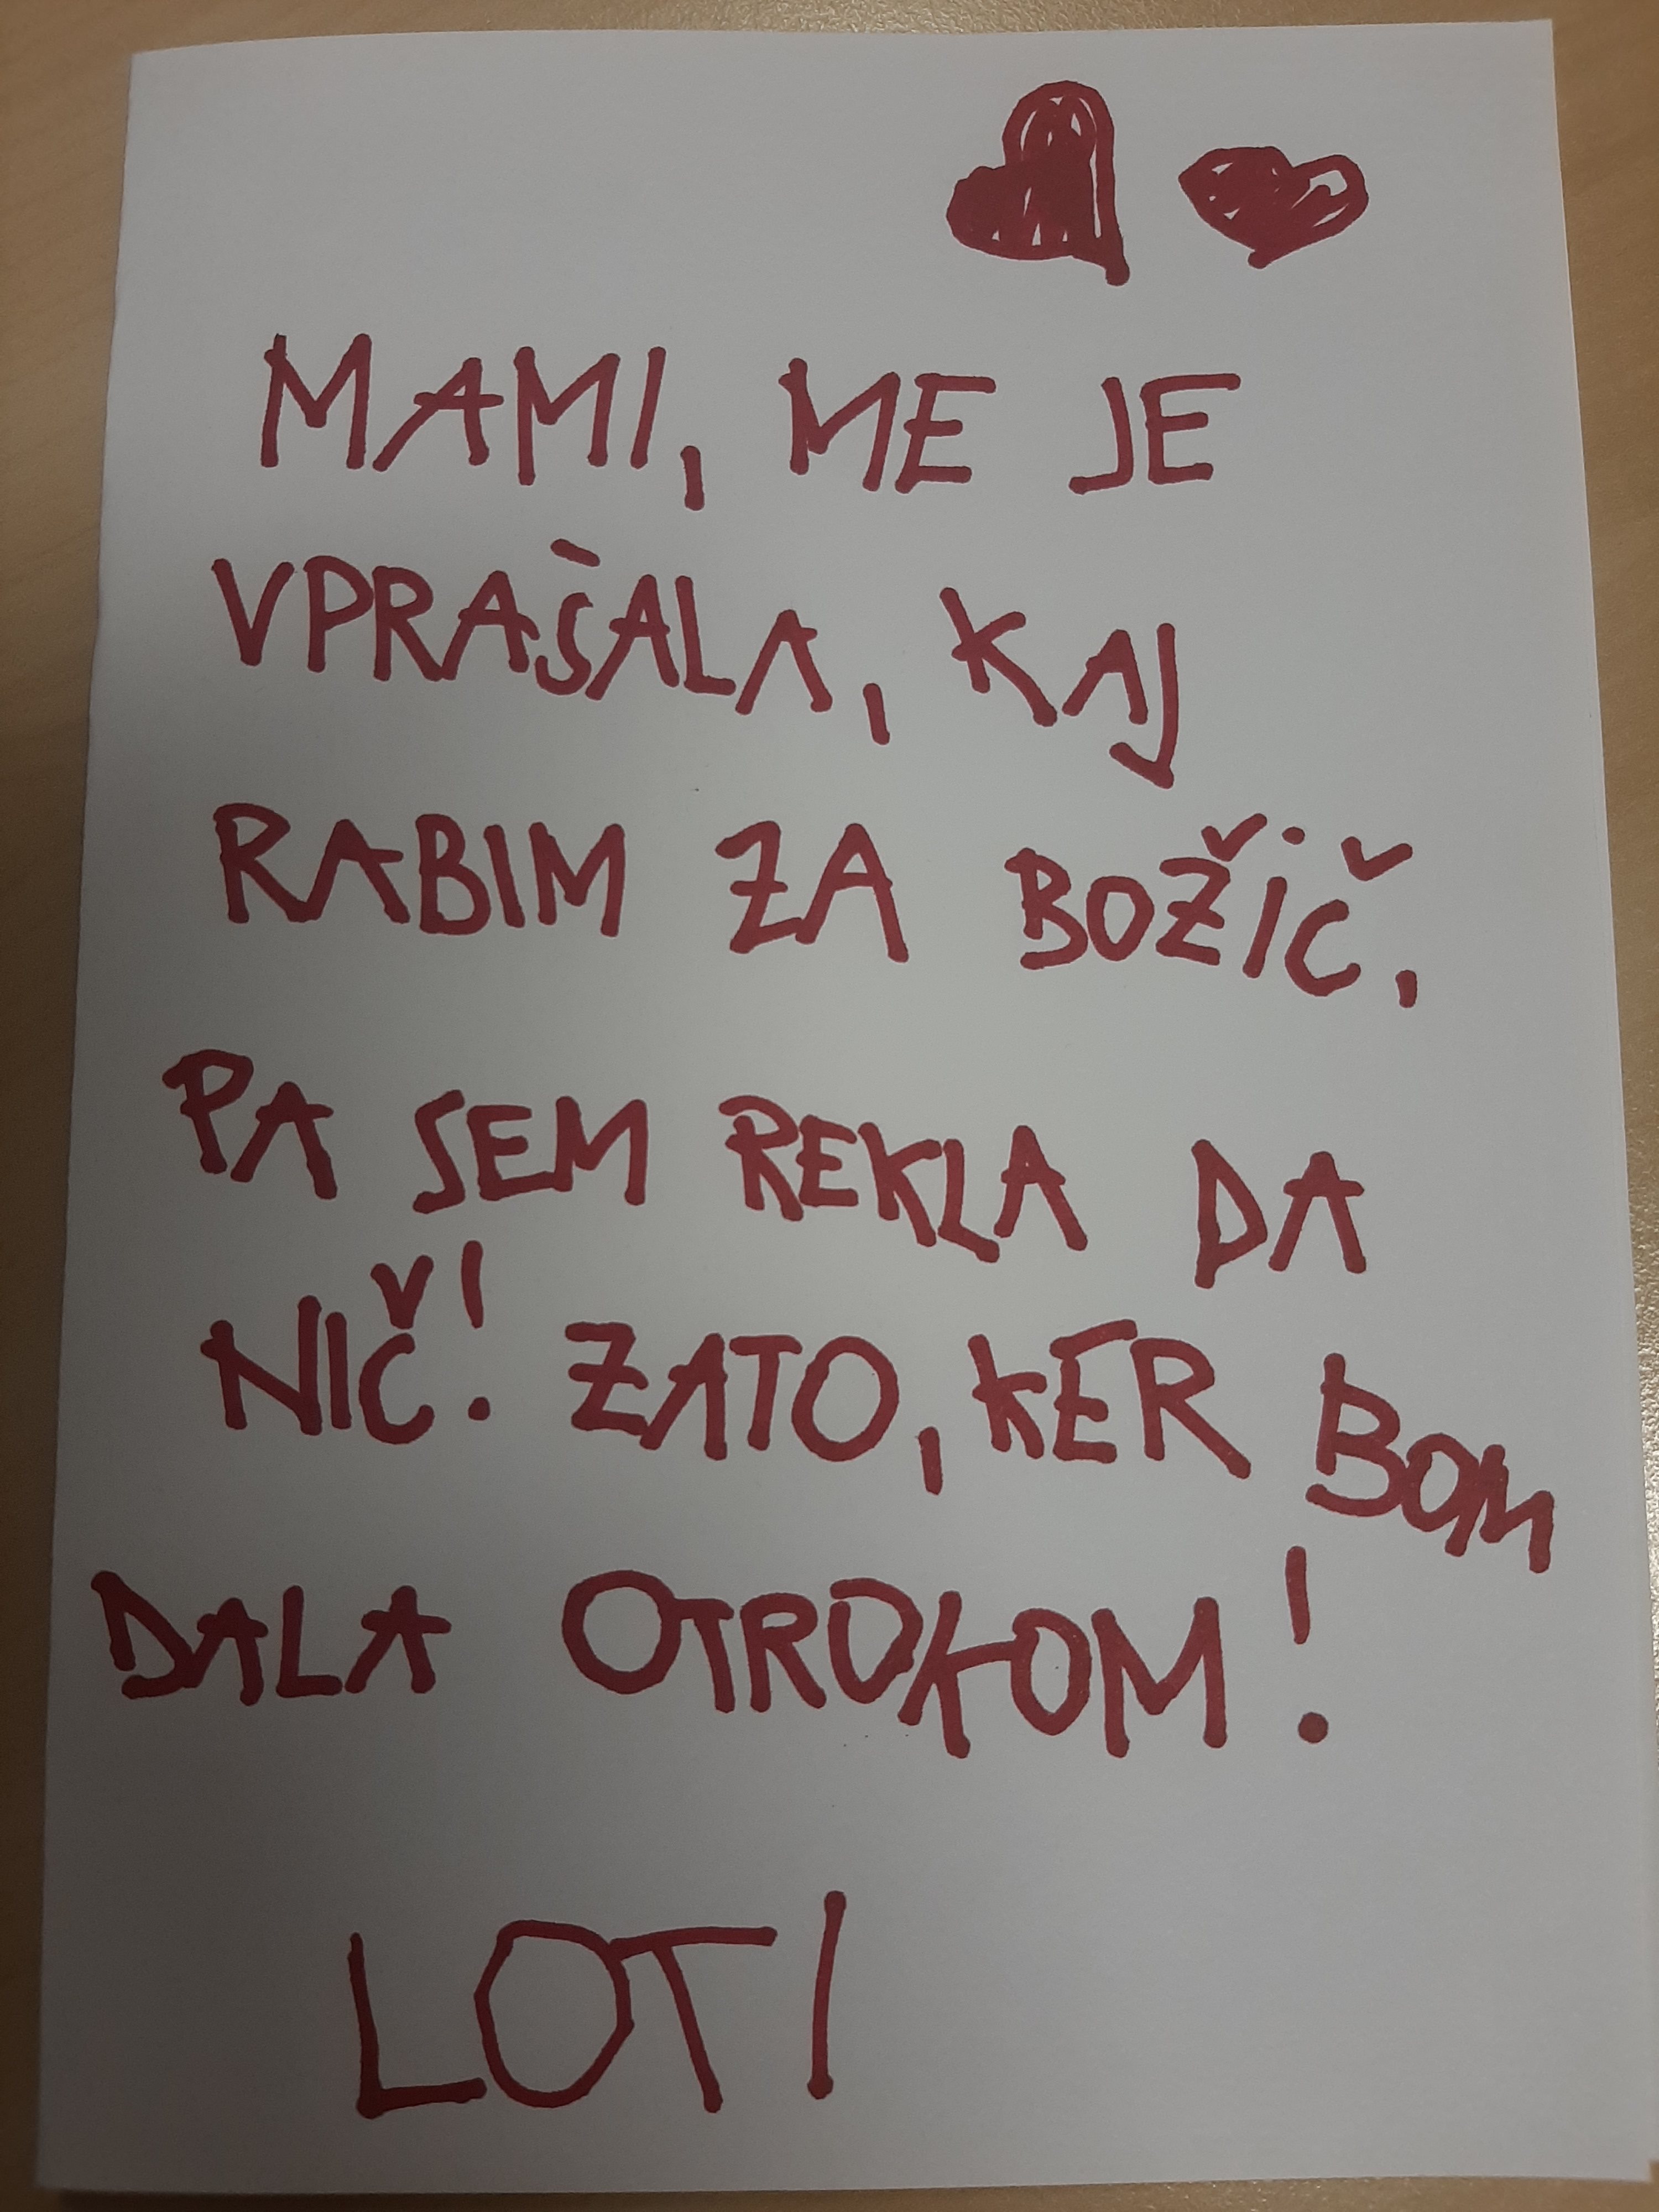 MAMI, ME JE
VPRAŠALA, KAJ
RABIM ZA BOŽIČ,
PA SEM REKLA DA
NIČ! ZATO, KER BOM
DALA OTROKOM!
LOTI